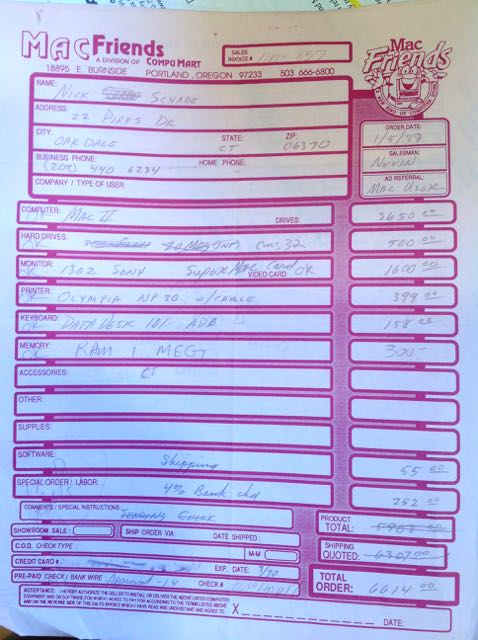 MacFriends
A DIVISION OF COMPUMART
18895 E. BURNSIDE PORTLAND, OREGON 97233 503 666-6800
SALES INVOICE # 857
Mac Friends
NAME: NICK SCHADE
ADDRESS: 22 PIRES DR
CITY: OAKDALE STATE: CT ZIP: 06370
BUSINESS PHONE: (203) 440 6234 HOME PHONE:
COMPANY / TYPE OF USER:
ORDER DATE: 1/5/89
SALESMAN: NEVIN
AD REFERRAL: MAC USER
COMPUTER: MAC II DRIVES: 3650 00
OK
HARD DRIVES: CMS 32 500 00
OK
MONITOR: 1302 SONY SUPERMAC Card OK VIDEO CARD 1600 00
OK
PRINTER: OLYMPIA NP 80 W/CABLE 399 00
OK
KEYBOARD: DATADESK 101 ADB 158 00
OK
MEMORY: RAM 1 MEG 300.-
OK
ACCESSORIES: CT
OTHER:
SUPPLIES:
SOFTWARE: Shipping 55 00
SPECIAL ORDER / LABOR: 4% Bank chg 252 00
COMMENTS / SPECIAL INSTRUCTIONS
SENDING CHECK
PRODUCT TOTAL: 5908 00
SHOWROOM SALE: SHIP ORDER VIA: DATE SHIPPED:
C.O.D. CHECK TYPE: M-M
SHIPPING QUOTED: 6307 00
CREDIT CARD #: EXP. DATE: 9/90
PRE-PAID CHECK / BANK WIRE: CHECK #
TOTAL ORDER: 6614 00
ACCEPTANCE: I HEREBY AUTHORIZE THE SELLER TO INSTALL OR DELIVER THE ABOVE LISTED COMPUTER
AND/OR SOFTWARE FOR WHICH I AGREE TO PAY FOR ACCORDING TO THE TERMS LISTED ABOVE
AND ON THE REVERSE SIDE OF THIS SALES INVOICE WHICH I HAVE READ AND UNDERSTAND AND AGREE TO.
X DATE: